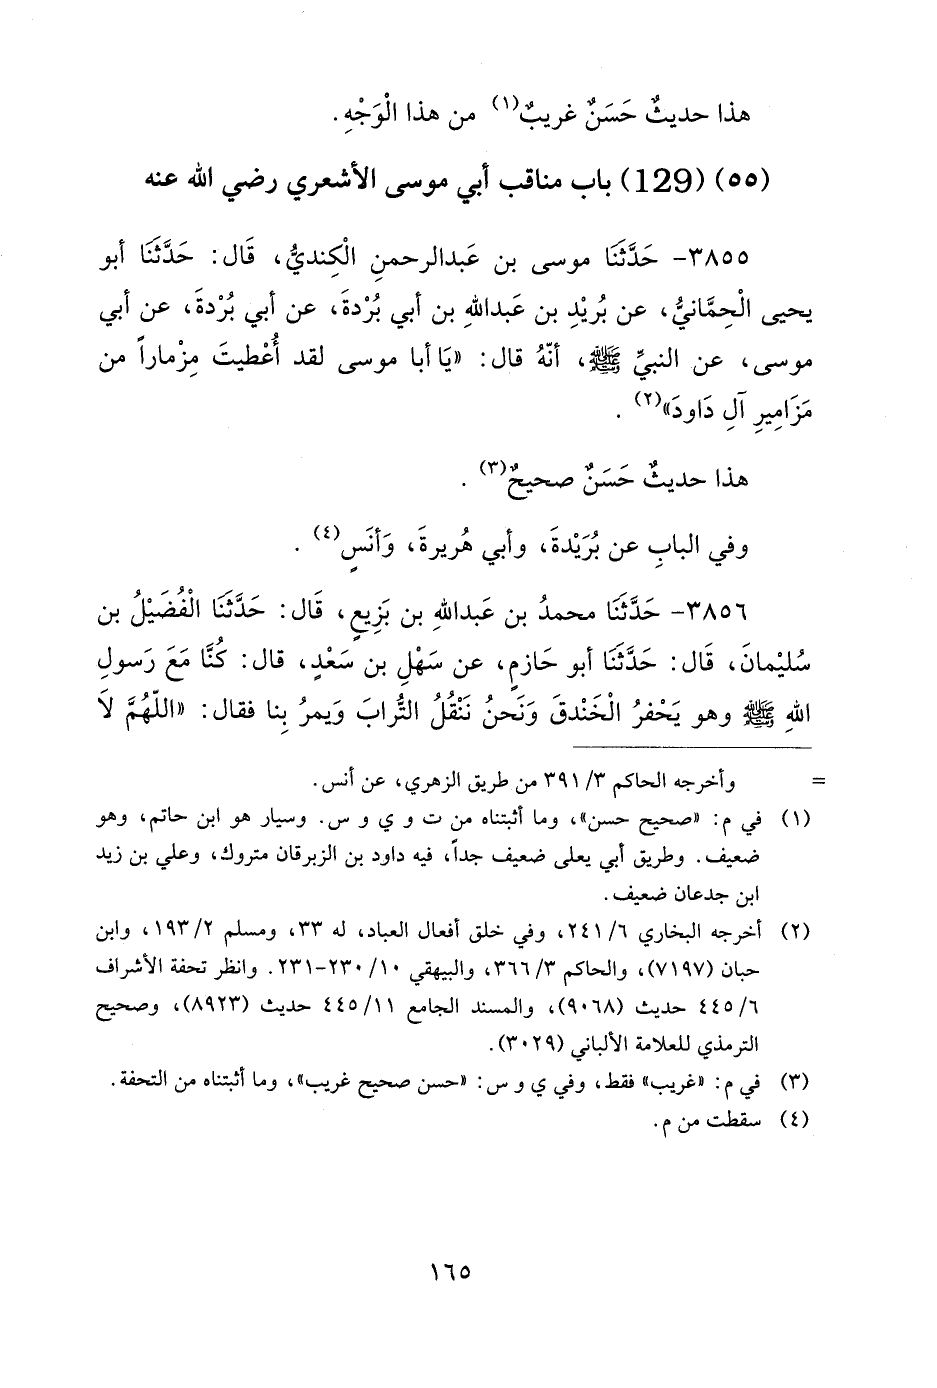 هذا حديثٌ حَسَنٌ غريبٌ(١) من هذا الْوَجْهِ.
(٥٥) (129) باب مناقب أبي موسى الأشعري رضي الله عنه
٣٨٥٥- حَدَّثَنَا موسى بن عَبدالرحمنِ الْكِنديُّ، قَال: حَدَّثَنَا أبو
يحيى الْحِمَّانيُّ، عن بُرَيْدِ بن عَبداللهِ بن أبي بُرْدةَ، عن أبي بُرْدةَ، عن أبي
موسى، عن النبيِّ ﷺ، أنّهُ قال: «يَا أبا موسى لقد أُعْطيتَ مِزْماراً من
مَزَامِيرِ آلِ دَاودَ»(٢).
هذا حديثٌ حَسَنٌ صحيحٌ(٣).
وفي البابِ عن بُرَيْدةَ، وأبي هُريرةَ، وَأنَسٍ(٤).
٣٨٥٦- حَدَّثَنَا محمدُ بن عَبداللهِ بن بَزِيعٍ، قَال: حَدَّثَنَا الْفُضَيْلُ بن
سُليْمانَ، قَال: حَدَّثَنَا أبو حَازمٍ، عن سَهْلِ بن سَعْدٍ، قال: كُنَّا مَعَ رَسولِ
اللهِ ﷺ وهو يَحْفرُ الْخَنْدقَ وَنَحنُ نَنْقُلُ التُّرابَ وَيمرُ بِنا فقال: «اللّهُمَّ لَا
= وأخرجه الحاكم ٣/ ٣٩١ من طريق الزهري، عن أنس.
(١) في م: «صحيح حسن»، وما أثبتناه من ت و ي و س. وسيار هو ابن حاتم، وهو
ضعيف. وطريق أبي يعلى ضعيف جداً، فيه داود بن الزبرقان متروك، وعلي بن زيد
ابن جدعان ضعيف.
(٢) أخرجه البخاري ٦/ ٢٤١، وفي خلق أفعال العباد، له ٣٣، ومسلم ٢/ ١٩٣، وابن
حبان (٧١٩٧)، والحاكم ٣/ ٣٦٦، والبيهقي ١٠/ ٢٣٠-٢٣١. وانظر تحفة الأشراف
٦/ ٤٤٥ حديث (٩٠٦٨)، والمسند الجامع ١١/ ٤٤٥ حديث (٨٩٢٣)، وصحيح
الترمذي للعلامة الألباني (٣٠٢٩).
(٣) في م: «غريب» فقط، وفي ي و س: «حسن صحيح غريب»، وما أثبتناه من التحفة.
(٤) سقطت من م.
١٦٥